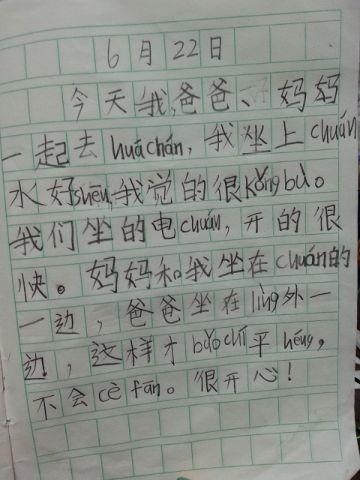 6月22日
今天我,爸爸、妈妈
一起去huáchán,我坐上chuán
水好shēn,我觉的很kǒngbù。
我们坐的电chuán,开的很
快。妈妈和我坐在chuán的
一边,爸爸坐在lìng外一
边,这样才bǎochí平héng,
不会cè fān。很开心!